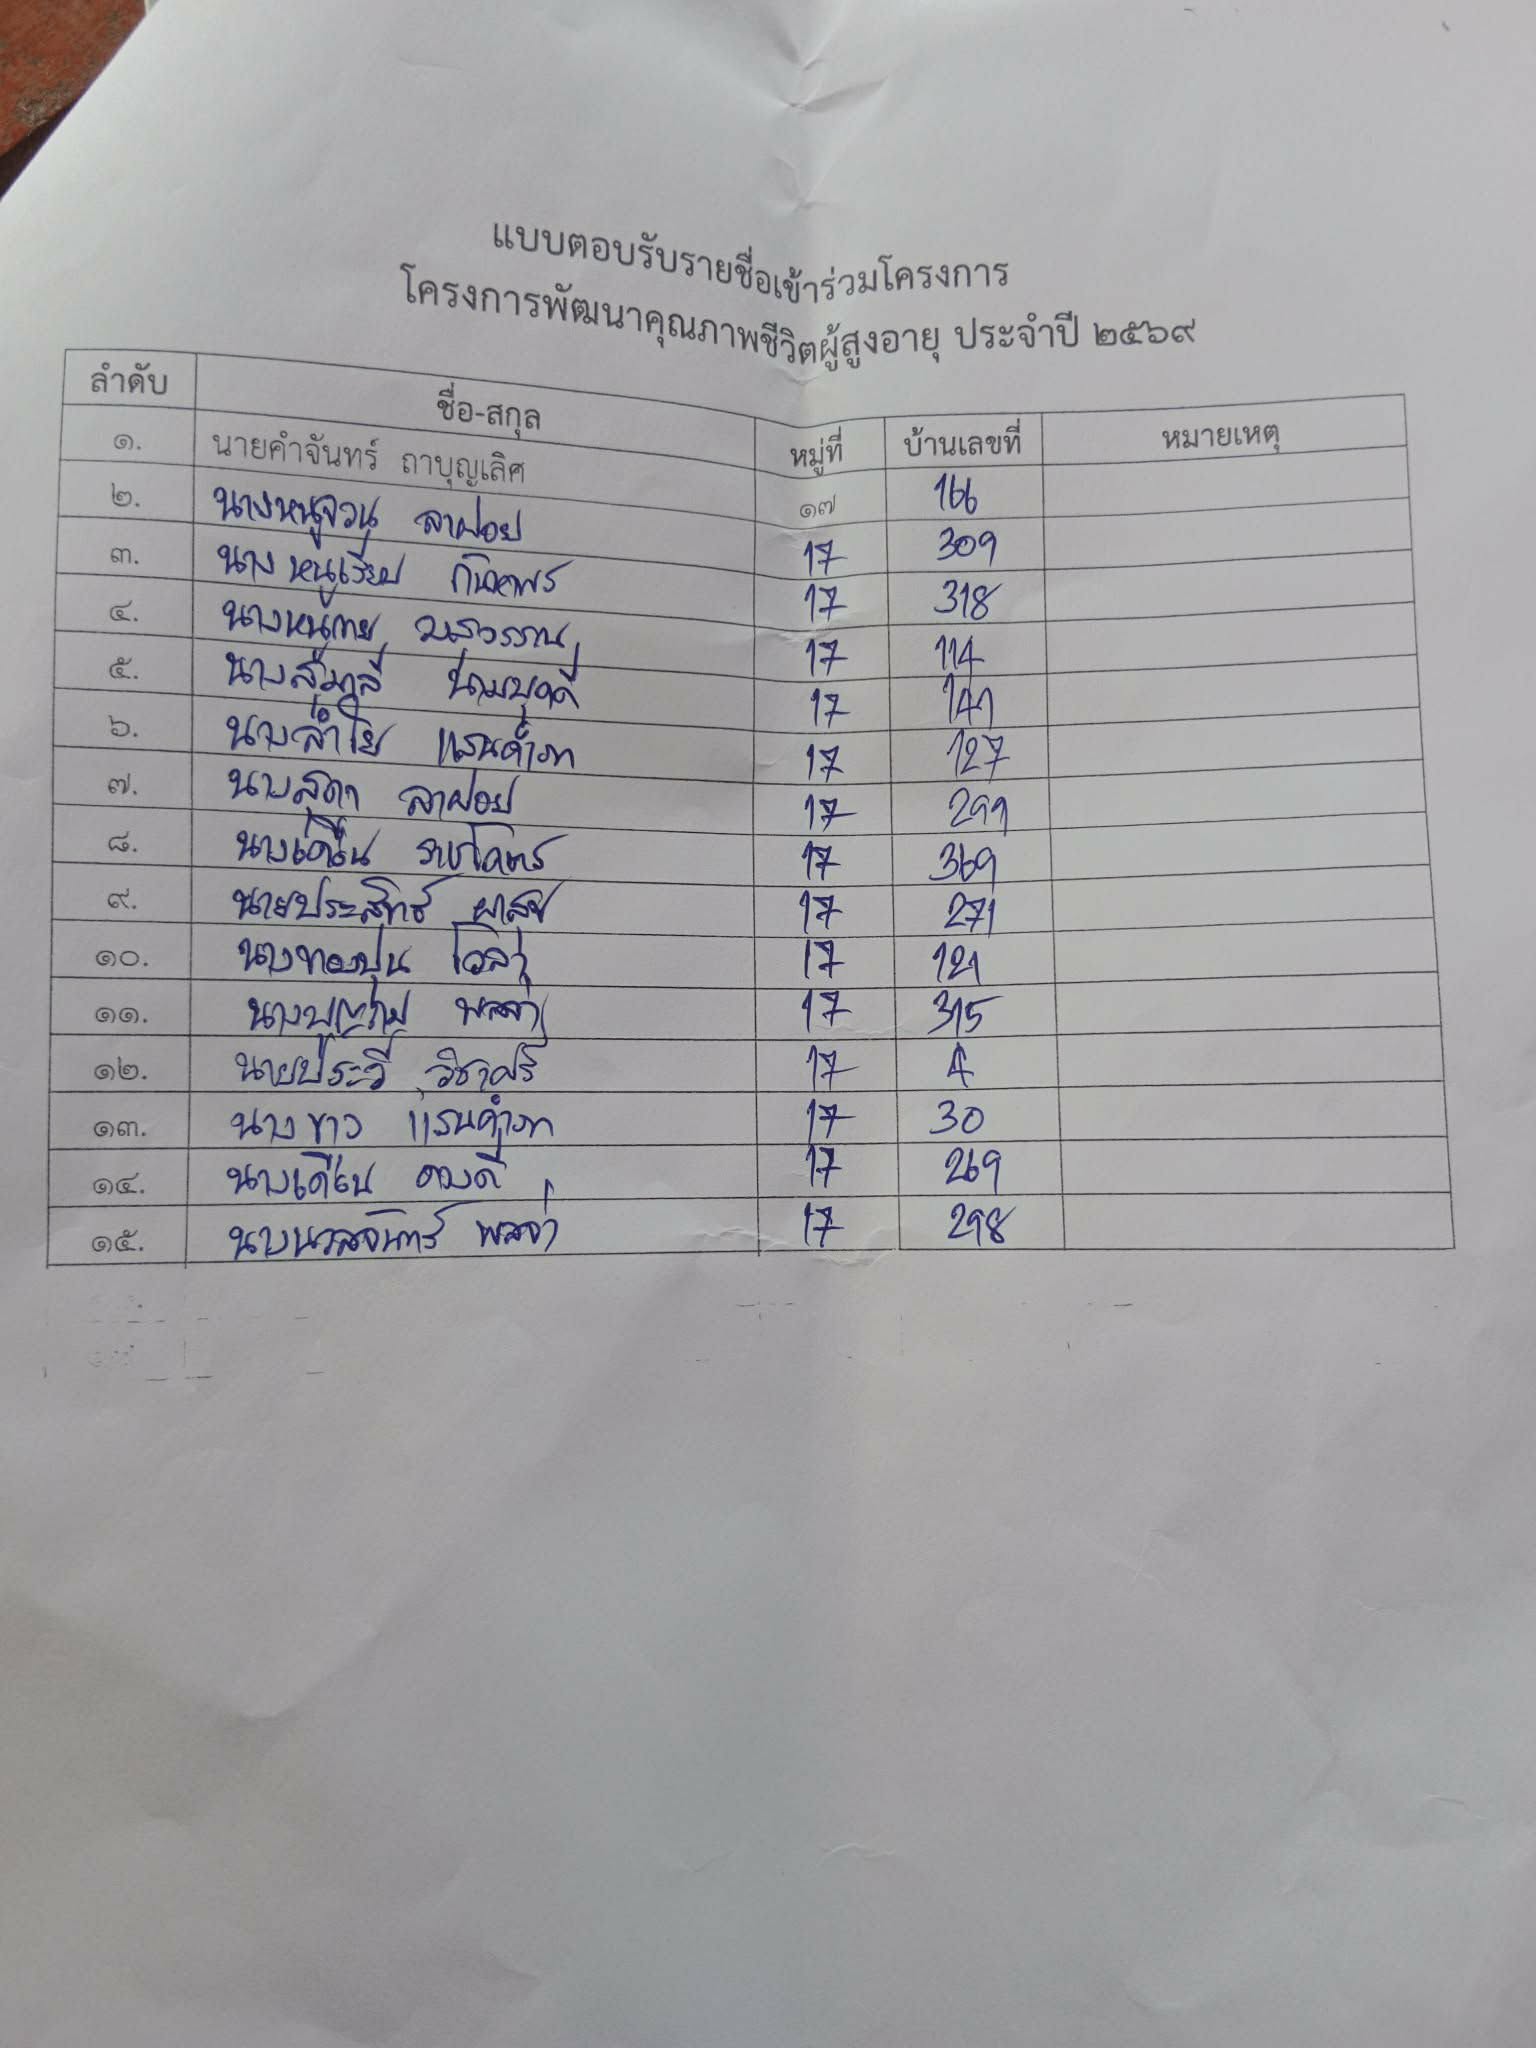 แบบตอบรับรายชื่อเข้าร่วมโครงการ
โครงการพัฒนาคุณภาพชีวิตผู้สูงอายุ ประจำปี ๒๕๖๙
ลำดับ ชื่อ-สกุล หมู่ที่ บ้านเลขที่ หมายเหตุ
๑. นายคำจันทร์ ถาบุญเลิศ ๑๗ 166
๒. นางหนูจวน ลาฝอย 17 309
๓. นางหนูเรียบ กัณหาพร 17 318
๔. นางหนูกาย 17 114
๕. นางสุมาลี นามบุดดี 17 141
๖. นางลำไย แสนคำภา 17 127
๗. นางสุดา ลาฝอย 17 291
๘. นางเคลื่อน ราชโคตร 17 369
๙. นายประสิทธิ์ ผาสุข 17 271
๑๐. นางทองปุน โวลา 17 121
๑๑. พลจ่า 17 315
๑๒. นายประวี วิชาศรี 17 4
๑๓. นางขาว แสนคำภา 17 30
๑๔. นางเดือน ดวงดี 17 269
๑๕. นางนวลจันทร์ พลจ่า 17 298